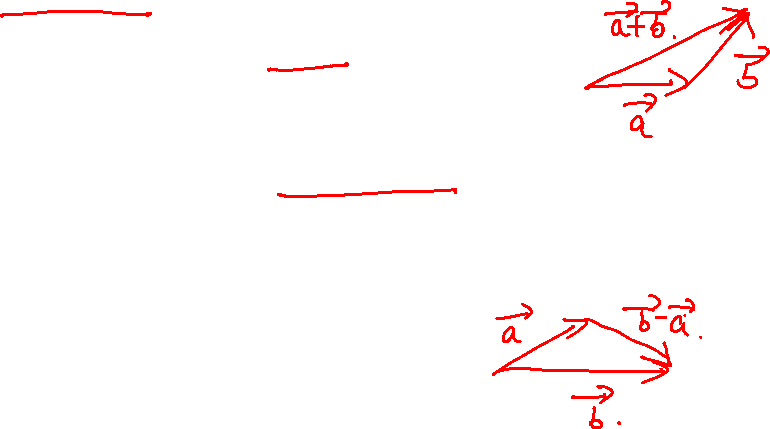 $\vec{a}+\vec{b}$.
$\vec{b}$
$\vec{a}$
$\vec{a}$
$\vec{b}-\vec{a}$.
$\vec{b}$.